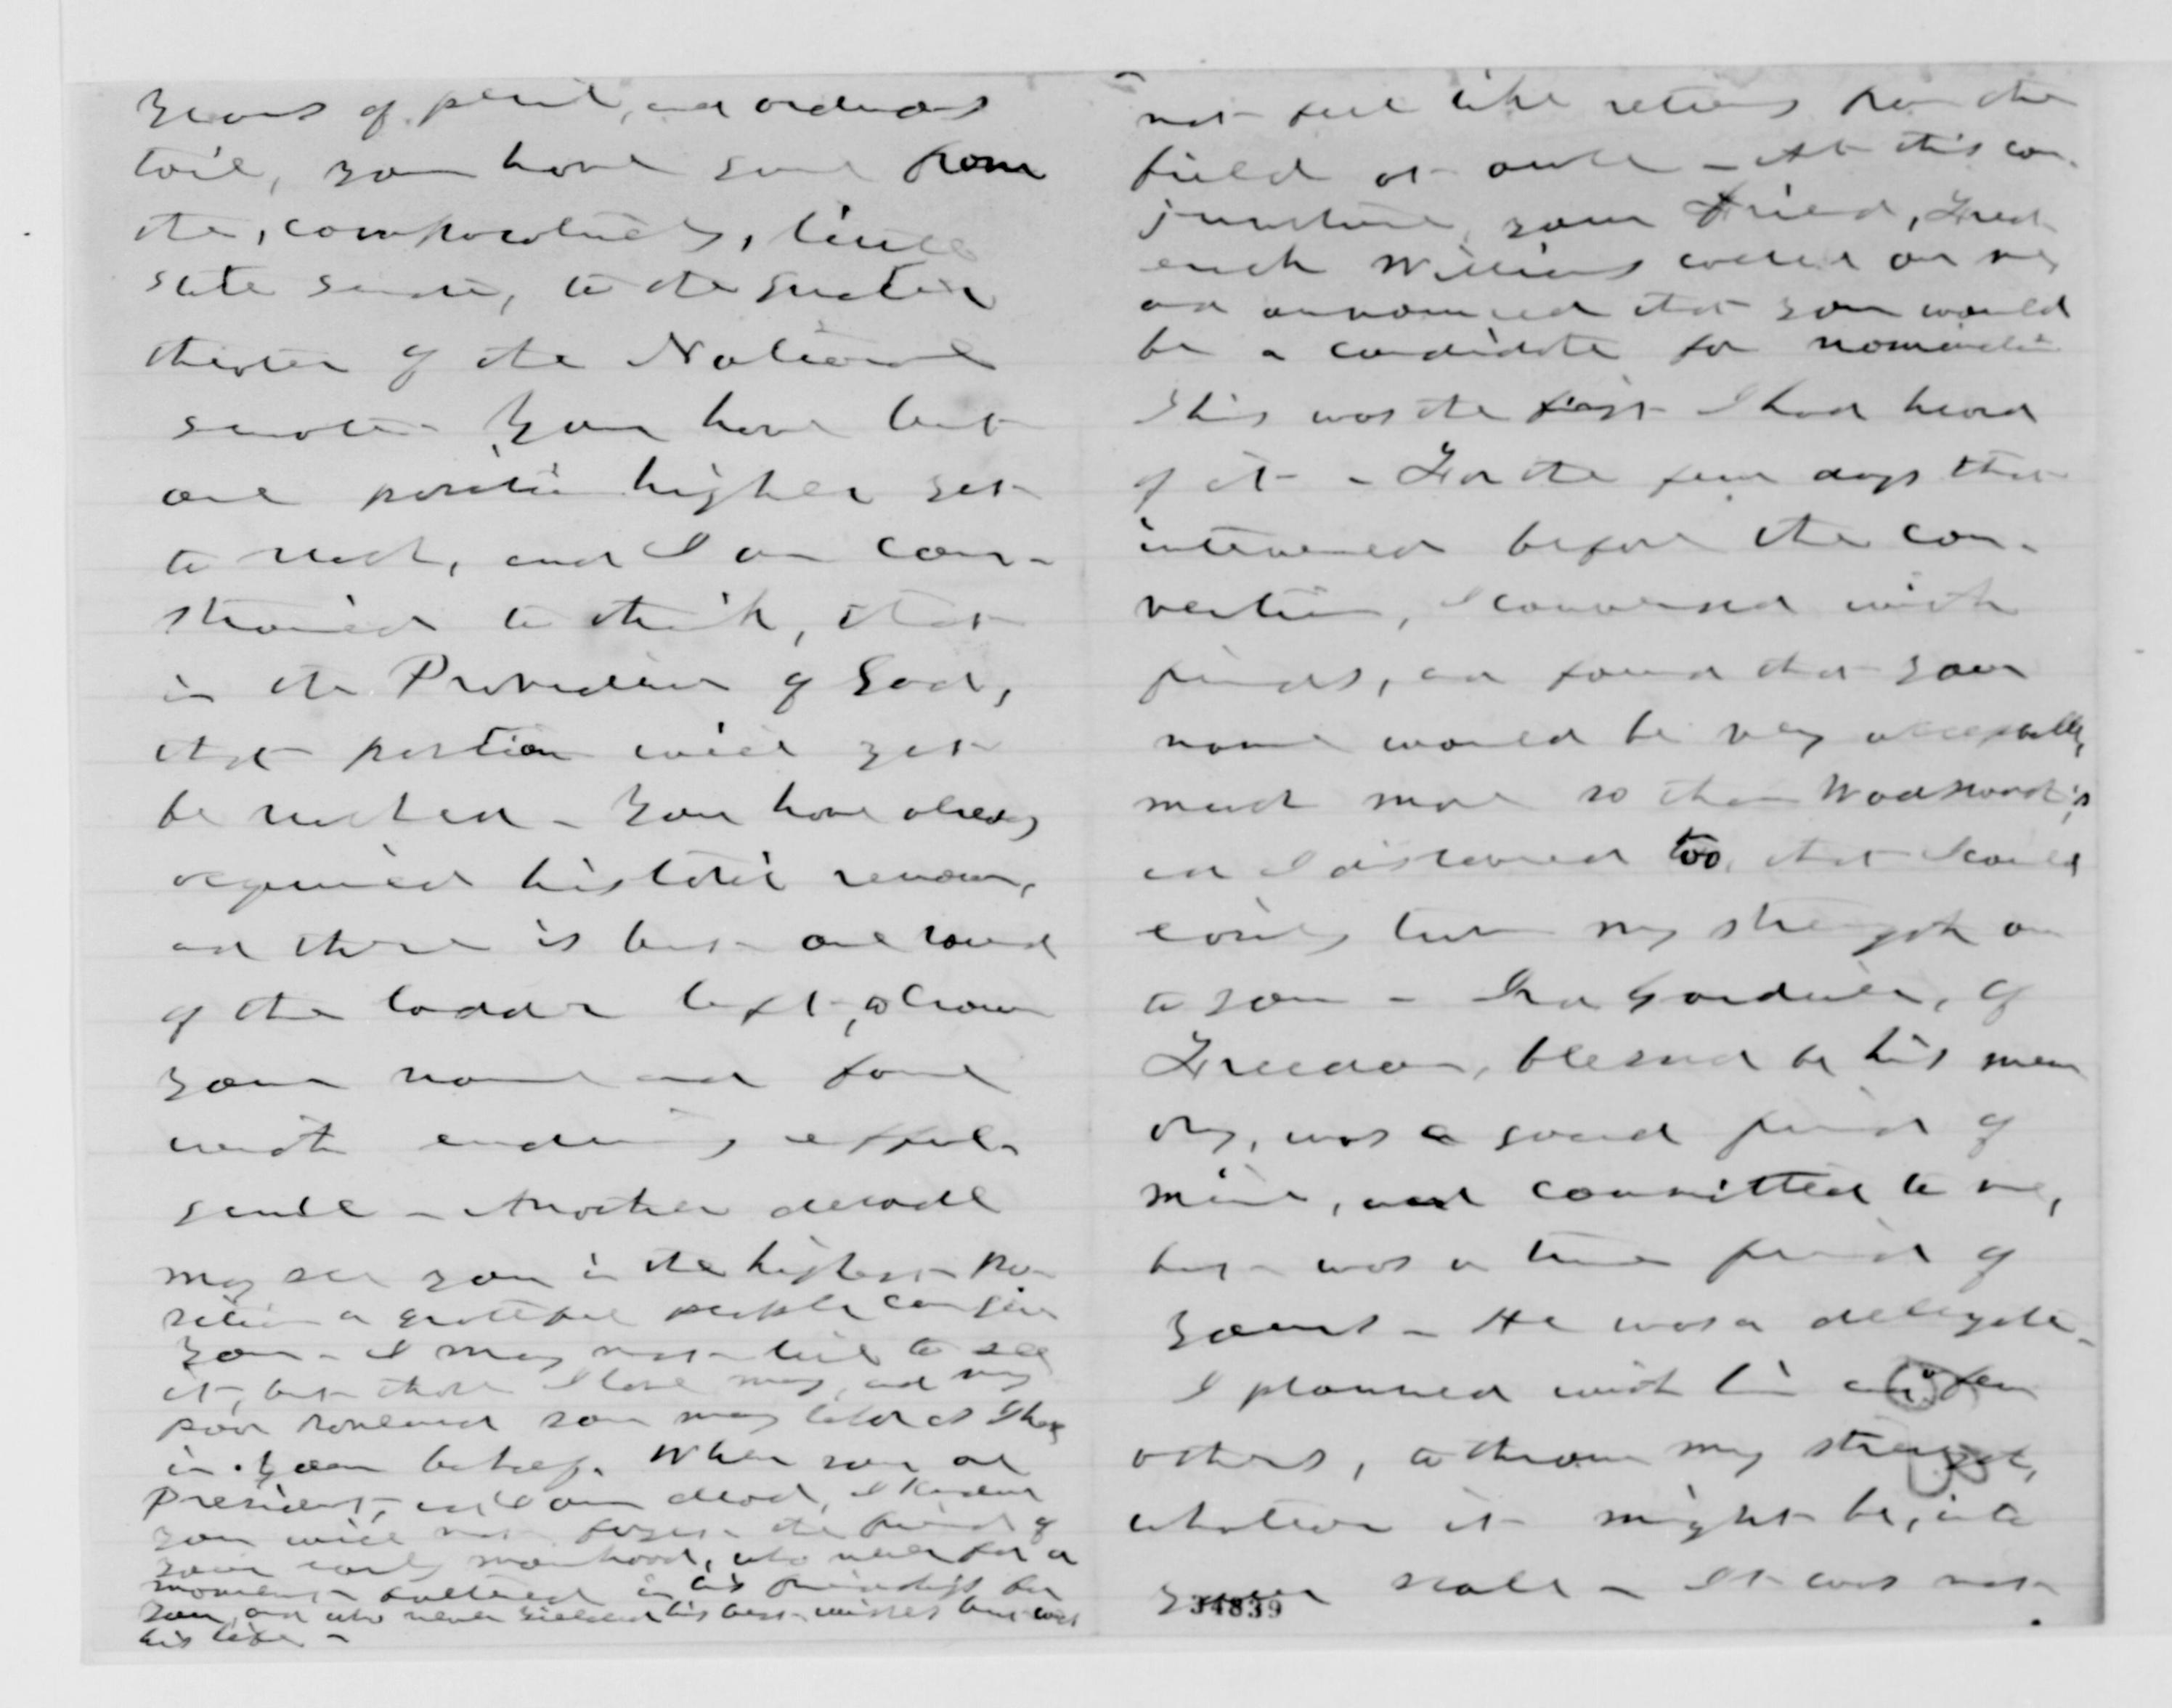 years of peril, and arduous
toil, you have gone from
the, comparatively, little
state senate, to the greater
theater of the National
senate - You have but
one position higher yet
to reach, and I am con-
strained to think, that
in the Providence of God,
that position will yet
be reached - You have already
acquired historic renown,
and there is but one round
of the ladder left, to crown
your name and fame
with enduring efful-
gence - Another decade
may see you in the highest po-
sition a grateful people can give
you - I may not live to see
it, but those I love may, and my
poor son may labor as I have
in your behalf. When you are
President, and I am dead, I know
you will not forget the friend of
your early manhood, who never for a
moment faltered in his friendship for
you, and who never yielded his best wishes but with
his life -
not feel like retiring from the
field at once - At this con-
juncture, your friend, Fred-
erick Williams called on me,
and announced that you would
be a candidate for nomination
This was the first I had heard
of it - For the few days that
intervened before the con-
vention, I conversed with
friends, and found that your
name would be very acceptable,
much more so than Woodward's,
and I discovered too, that I could
easily turn my strength on
to you - Ira Gardner, of
Freedom, blessed be his mem
ory, was a good friend of
mine, and committed to me,
but was a true friend of
yours - He was a delegate -
I planned with him and a few
others, to throw my strength,
whatever it might be, into
your scale - It was not
34839